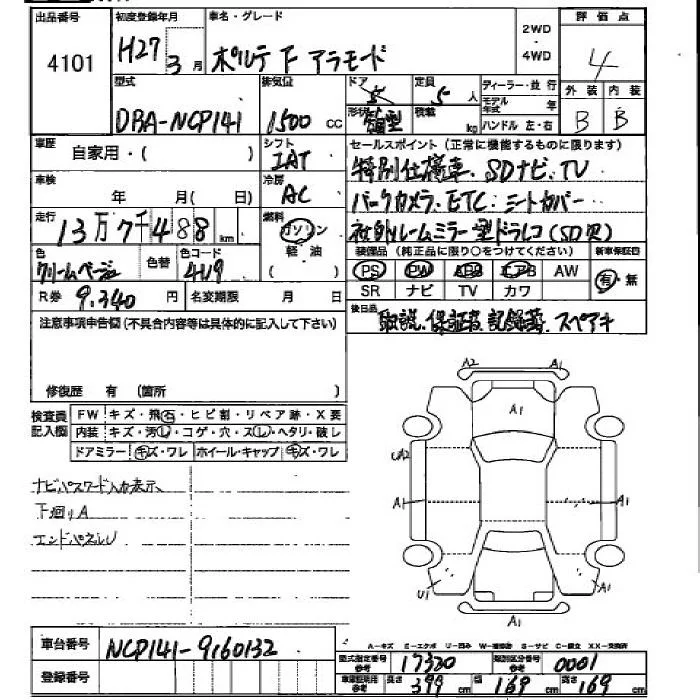 出品番号 初度登録年月 車名・グレード 2WD ・ 4WD 評価点
4101 H27 3月 ポルテ F アラモード 4
型式 排気量 ドア 定員 ディーラー・並行 外装 内装
DBA-NCP141 1500 cc 5 5人 モデル年式 年 B B
形状 箱型 積載 kg ハンドル 左・右
車歴 自家用・( ) シフト IAT セールスポイント (正常に機能するものに限ります)
特別仕様車、SDナビ、TV
車検 年 月(日) 冷房 AC バックカメラ、ETC、シートカバー
走行 13万7千488km 燃料 ガソリン・軽・油 社外ルームミラー型ドラレコ(SD欠)
色 クリームベージュ 色替 色コード 4U9 装備品 (純正品に限り○をつけてください) 新車保証書
PS PW ABS エアB AW 有・無
R券 9.340 円 名変期限 月 日 SR ナビ TV カワ
注意事項申告欄(不具合内容等は具体的に記入して下さい) 後日品 取説、保証書、記録簿、スペアキ
修復歴 有 (箇所 )
検査員記入欄 FW キズ・飛石・ヒビ割・リペア跡・X要
内装 キズ・汚レ・コゲ・穴・スレ・ヘタリ・破レ
ドアミラー キズ・ワレ ホイール・キャップ キズ・ワレ
A2 A1
A1
UA2
A1 A1
U1 A1
A1
ナビパスワード入力表示
下廻りA
エンドパネルU
A-キズ E-エクボ U-凹み W-補修跡 S-サビ C-腐食 XX-交換済
車台番号 NCP141-9160132 型式指定番号 参考 17320 類別区分番号 参考 0001
登録番号 車庫証明用 参考 長さ 399 cm 幅 169 cm 高さ 169 cm